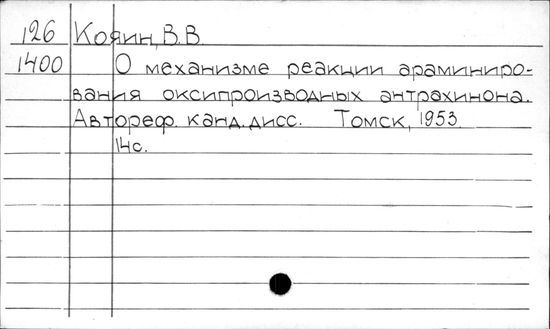 126 Кояин, В.В.
1400 О механизме реакции араминиро-
вания оксипроизводных антрахинона.
Автореф. канд. дисс. Томск, 1953
14с.